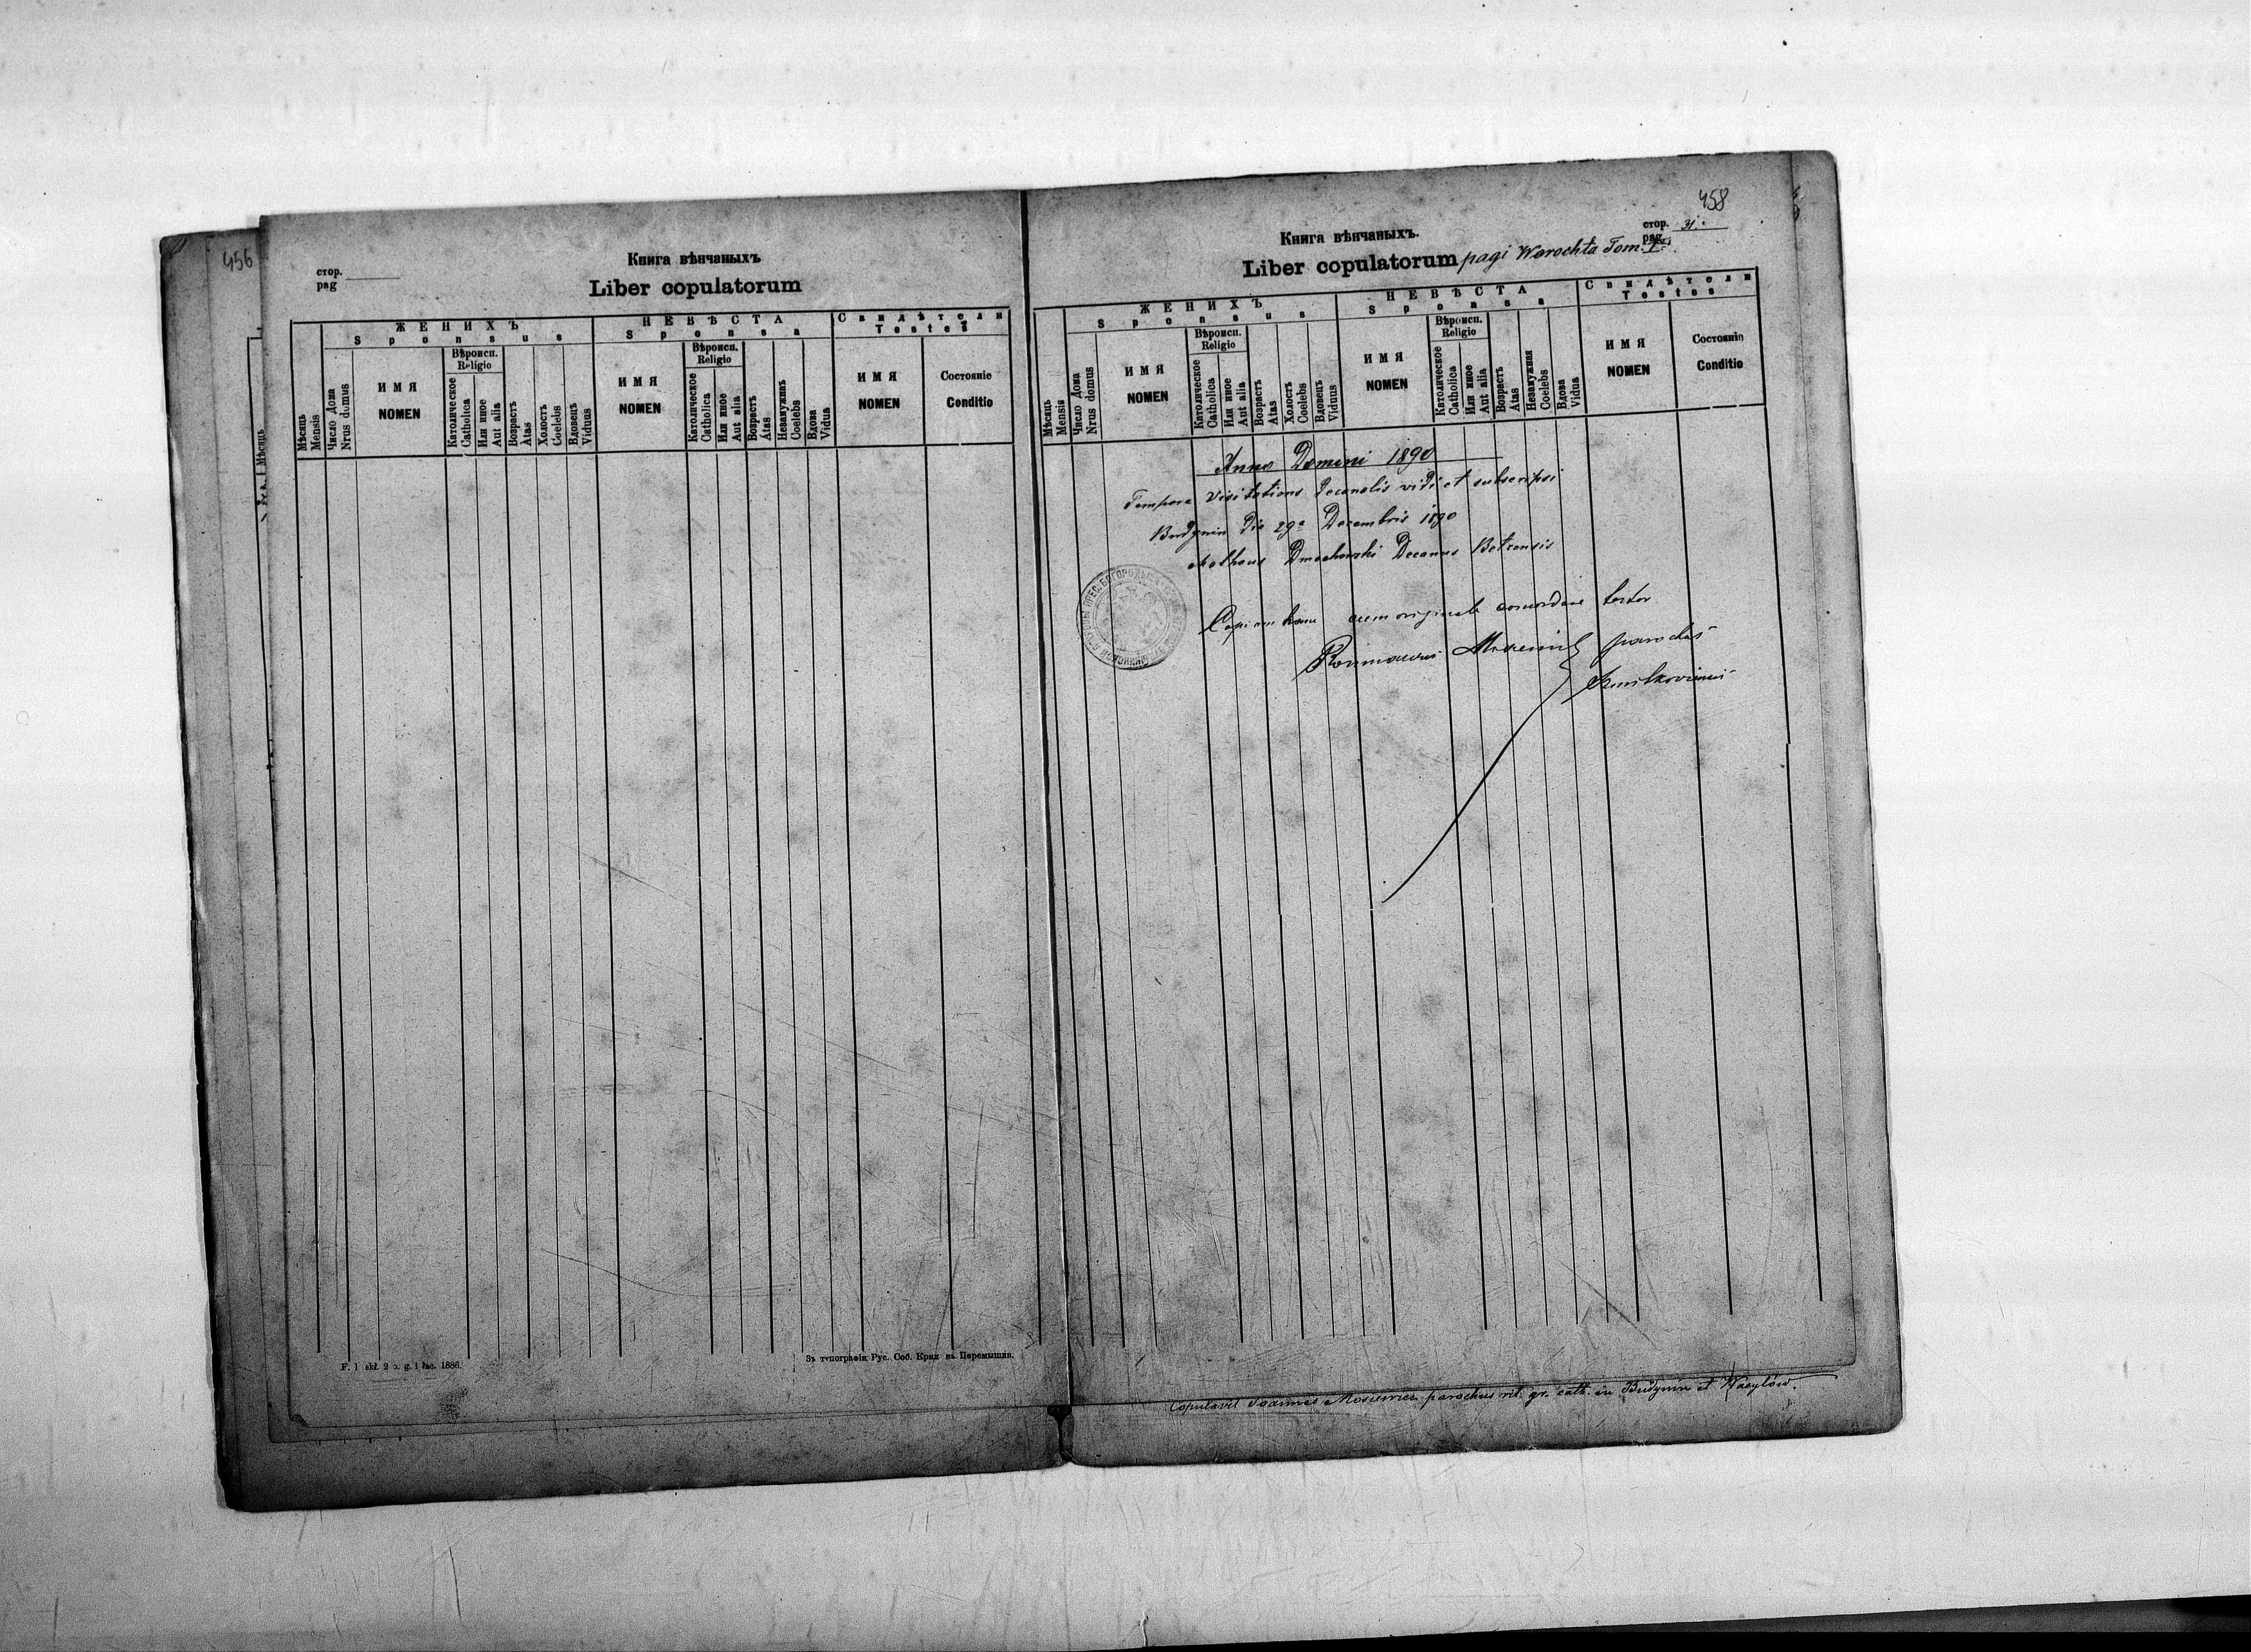 456
стор.
pag
Книга вѣнчаныхъ
Liber copulatorum
Мѣсяць
Mensis
Число Дома
Nrus domus
ЖЕНИХЪ
Sponsus
ИМЯ
NOMEN
Вѣроисп.
Religio
Католическое
Catholica
Или иное
Aut alia
Возрастъ
Atas
Холостъ
Coelebs
Вдовецъ
Viduus
НЕВѢСТА
Sponsa
ИМЯ
NOMEN
Вѣроисп.
Religio
Католическое
Catholica
Или иное
Aut alia
Возрастъ
Atas
Незамужняя
Coelebs
Вдова
Vidua
Свидѣтели
Testes
ИМЯ
NOMEN
Состояніе
Conditio
Зъ типографіи Рус. Соб. Крил въ Перемышли.
458
стор. 31.
pag.
Книга вѣнчаныхъ.
Liber copulatorum pagi Worochta Tom. I
Мѣсяць
Mensis
Число Дома
Nrus domus
ЖЕНИХЪ
Sponsus
ИМЯ
NOMEN
Вѣроисп.
Religio
Католическое
Catholica
Или иное
Aut alia
Возрастъ
Atas
Холостъ
Coelebs
Вдовецъ
Viduus
НЕВѢСТА
Sponsa
ИМЯ
NOMEN
Вѣроисп.
Religio
Католическое
Catholica
Или иное
Aut alia
Возрастъ
Atas
Незамужняя
Coelebs
Вдова
Vidua
Свидѣтели
Testes
ИМЯ
NOMEN
Состояніе
Conditio
Anno Domini 1890
Tempore visitations decanalis vidi et subscripsi
Budynin die 29a Decembris 1890
Decanus Betzensis
Copiam hanc cum originale concordare testor
parochus
Copulavit Joannes Mosiewicz parochus rit. gr. cath. in Budynin et Wasylów.